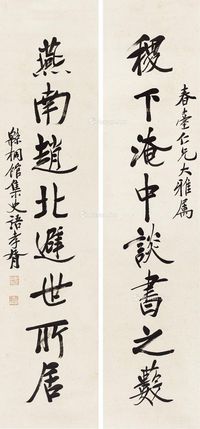 春臺仁兄大雅屬
稷下淹中談書之藪
燕南趙北避世所居
緜桐館集史語孝胥